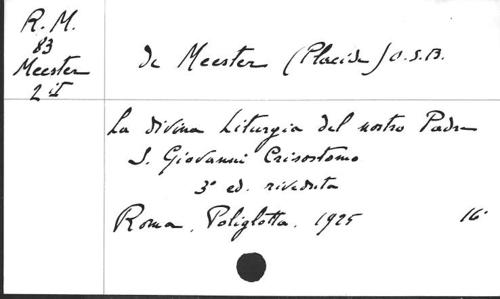 R. M.
83
Meester
2 II
de Meester (Placide) O.S.B.
La divina Liturgia del nostro Padre
S. Giovanni Crisostomo
3ª ed. riveduta
Roma, Poliglotta. 1925 16°